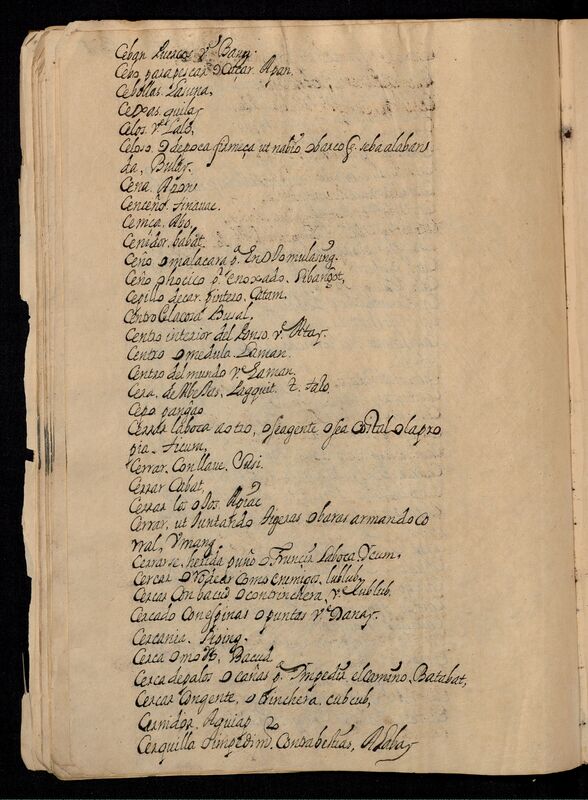 Ceban Puercos, vᵉ Banug.
Cebo, para pescar, o Caçar. Apan,
Cebollas, Lasuna,
Cexas, quilay
Celos, vᵉ Laló,
Celoso, de poca firmeça, ut nabio, o barco q. seba alaban
da, Bulay.
Cena, Apon,
Centeno,
Ceniça, Abo,
Cenidor, babat,
Ceño o mala cara pʳ
Ceño o hocico pʳ Enoxado, Sibangot,
Cepillo de carpintero, Catam,
Busal,
Centro interior del vᵉ Atay
Centro o medula Laman.
Centro del mundo vᵉ Laman.
Cera, de Abexas, Lagquit. t. talo
Cepo pangao
Cerrar la boca a otro, o sea gente o sea Costal o la pro
pia. ticum,
Cerrar, Con llave, Susi.
Cerrar Cubat,
Cerrar los ojos,
Cerrar, ut Juntando tigeras o baras armando Co
rral,
Cerrarse, herida puño o Fruncir la boca, ycum,
Cercar o rodear Como enemigos, lublub,
Cercar Con bacus o con trinchera, vᵉ Lublub,
Cercado Con espinas o puntas vᵉ Danay,
Cercania, Siping.
Cerca Bacud
Cerca de palos o cañas pʳ Impedir, el camino, Batabat,
Cercar Con gente, o trinchera, cubcub,
Cernidor, Aguiap
Cerquillo Con sabestias,